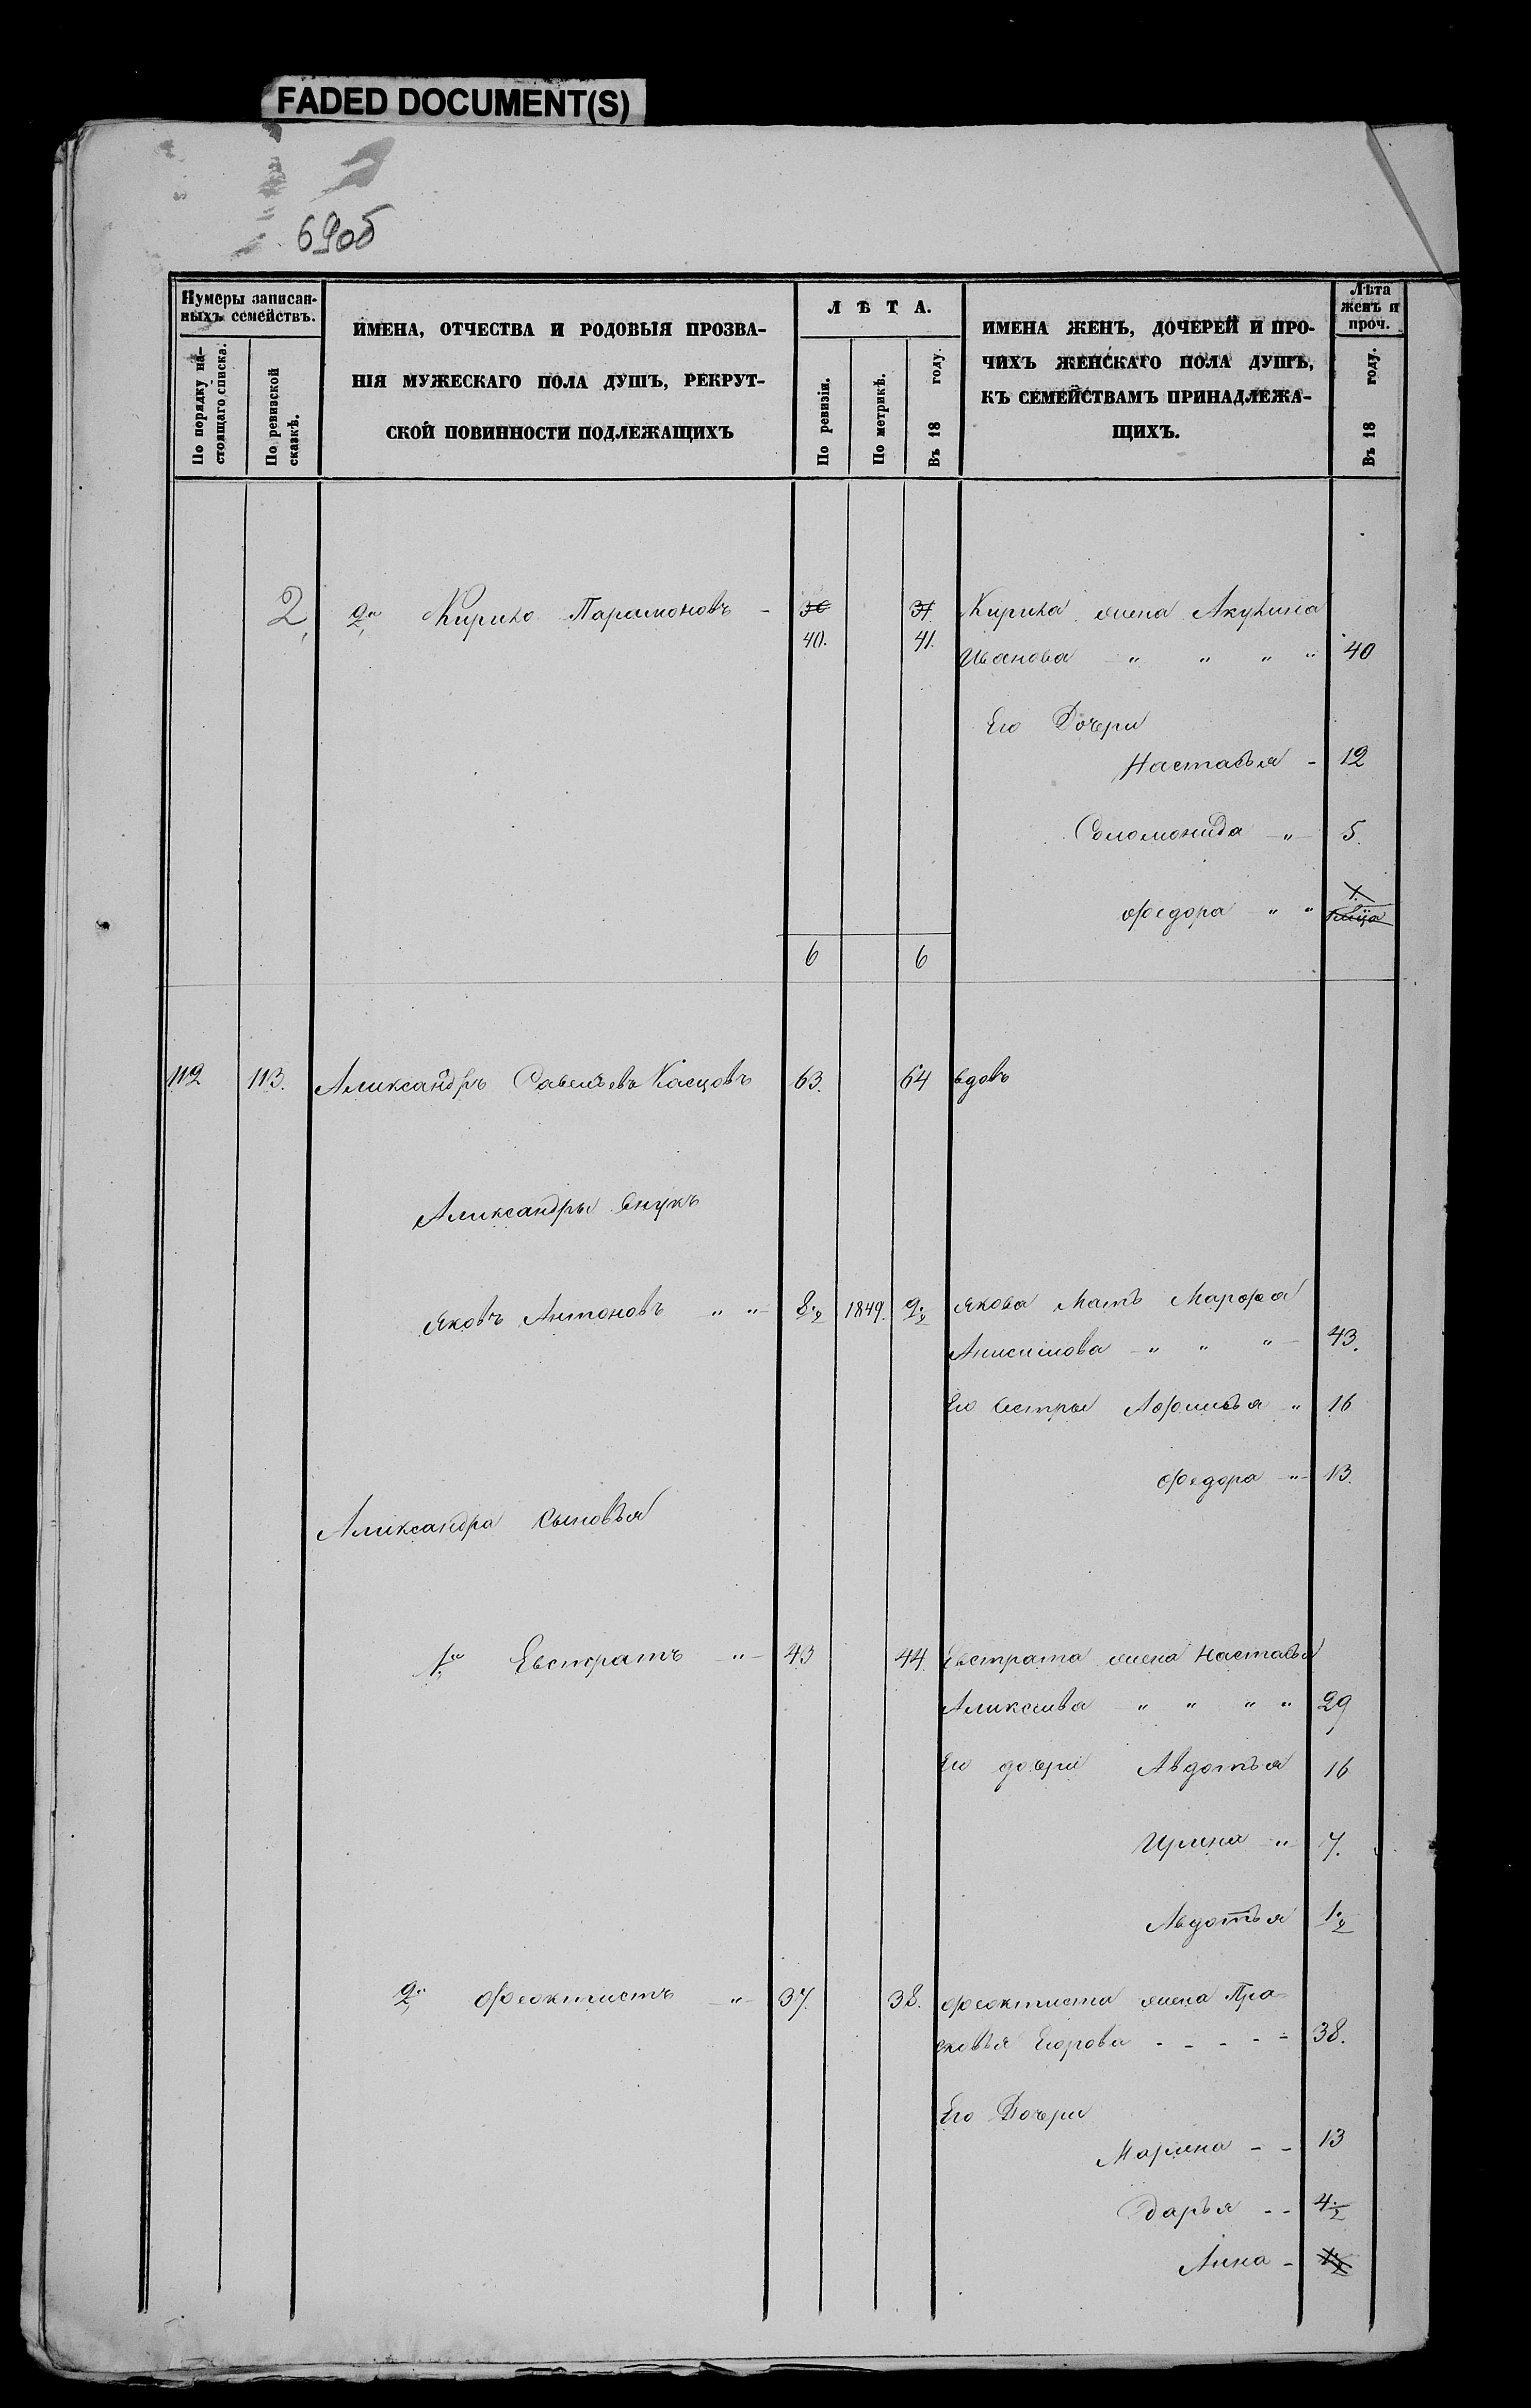 FADED DOCUMENT(S)
69об
Нумеры записан-
ныхъ семействъ.
По порядку на-
стоящаго списка.
По ревизской
сказкѣ.
ИМЕНА, ОТЧЕСТВА И РОДОВЫЯ ПРОЗВА-
НІЯ МУЖЕСКАГО ПОЛА ДУШЪ, РЕКРУТ-
СКОЙ ПОВИННОСТИ ПОДЛЕЖАЩИХЪ
ЛѢТА.
По ревизіи.
По метрикѣ.
Въ 18 году.
ИМЕНА ЖЕНЪ, ДОЧЕРЕЙ И ПРО-
ЧИХЪ ЖЕНСКАГО ПОЛА ДУШЪ,
КЪ СЕМЕЙСТВАМЪ ПРИНАДЛЕЖА-
ЩИХЪ.
Лѣта
женъ и
проч.
Въ 18 году.
2, 2й Кирило Парамоновъ - 30 31 Кирила жена Акулина
40. 41. Иванова " " " " 40
Его Дочери
Настасья - 12
Соломонида " 5.
Федора " " 1.
6 6
112 113. Александръ Савельевъ Касцовъ 63. 64 вдовъ
Александры внукъ
Яковъ Антоновъ " " 8½ 1849. 9½ Якова Мать Марфа
Анисимова " " " 43.
Его Сестры Афимья " 16
Федора " 13.
Александра Сыновья
1й Евстратъ " 43 44. Евстрата жена Настасья
Алексева " " " " 29
Его дочери Авдотья 16
Ирина " 7.
Авдотья 1½
2й Феоктистъ " 37. 38. Феоктиста жена Пра-
сковья Егорова - - - - - 38.
Его Дочери
Марина - - 13
Дарья - - 4½
Анна - 1½